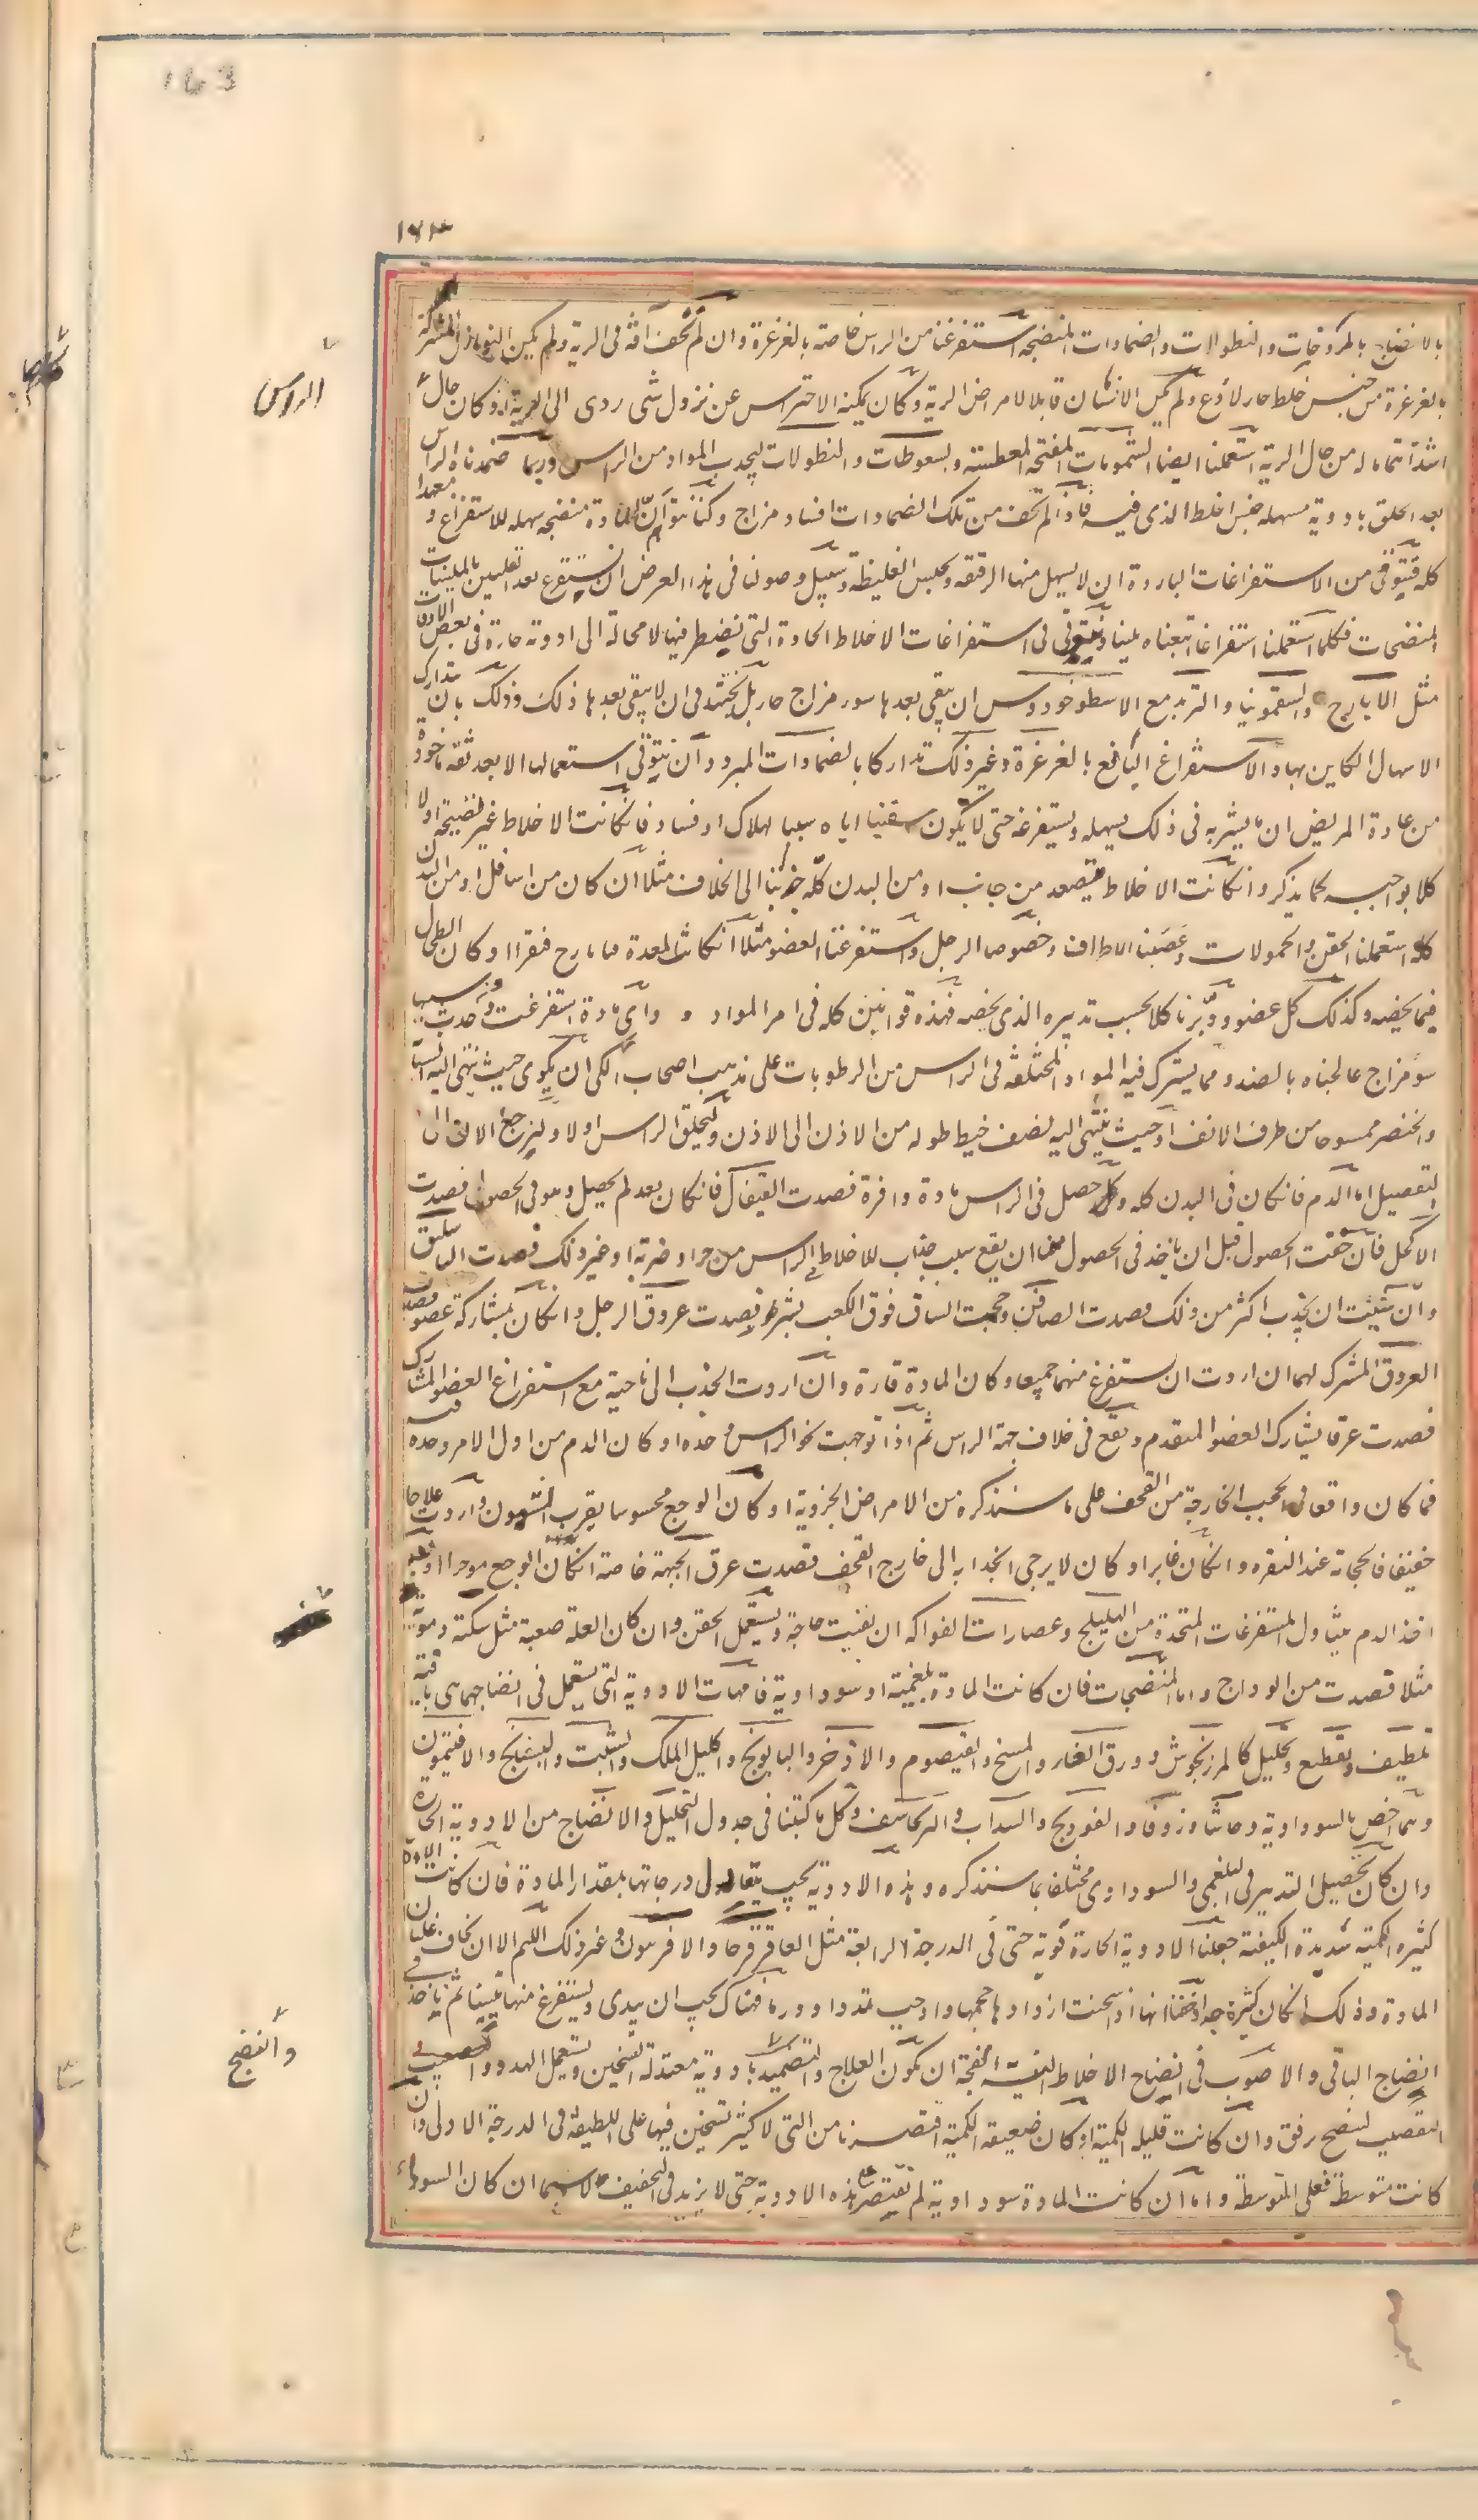 163
١٦٣
بالانضاج بالمروخات والنطولات والضمادات المنضجة استفرغنا من الراس خاصة بالغرغرة وان لم نخف آفة فى الرية ولم يكن النوازل
بالغرغرة من جنس خلط حار لاذع ولم يكن الانسان قابلا لامراض الرية وكان يمكنه الاحتراس عن نزول شى ردى الى الرية او كان حال
الراس
اشد اهتماما له من حال الرية استعملنا ايضا الشمومات المفتحة المعطسة والسعوطات والنطولات ليجذب المواد من الراس وربما ضمدناه الراس
بعد الحلق بادوية مسهلة جنس الخلط الذى فيه فاذا لم نخف من تلك الضمادات افساد مزاج وكنا نثق ان المادة منضجة سهلة للاستفراغ و
كله فنتوقى من الاستفراغات الباردة ان لا يسهل منها الرقيقة ويحبس الغليظة وسبيل وصولنا فى هذا الغرض ان نستفرغ بعد التليين بالملينات
المنضجات فكلما استعملنا استفراغا اتبعناه تليينا ونتوقى فى استفراغات الاخلاط الحادة التى نضطر فيها لا محالة الى ادوية حارة فى بعض الاوقات
مثل الايارج والسقمونيا والتربد مع الاسطوخودوس ان يبقى بعدها سوء مزاج حار بل نجتهد فى ان لا يبقى بعدها ذلك وذلك بان يتدارك
الاسهال الكاين بها والاستفراغ النافع بالغرغرة وغير ذلك تداركا بالضمادات المبردة وان نتوقى استعمالها الا بعد ثقة ماخوذة
من عادة المريض ان ما يشربه فى ذلك يسهله ويستفرغه حتى لا يكون سقينا اياه سببا لهلاك او فساد فان كانت الاخلاط غير نضيجة اولا
كلا بواجبه كما يذكر وان كانت الاخلاط يتصعد من جانب او من البدن كله جذبنا الى الخلاف مثلا ان كان من اسافل او من البدن
كله استعملنا الحقن والحمولات وعصبنا الاطراف وخصوصا الرجل واستفرغنا العضو مثلا ان كانت المعدة فبايارج فيقرا او كان الطحال
فيما يخصه وكذلك كل عضو ودبرنا كلا بحسب تدبيره الذى يخصه فهذه قوانين كله فى امر المواد و واى مادة استفرغت وحدثت سبب
سوء مزاج عالجناه بالضد ومما يشترك فيه المواد المختلفة فى الراس من الرطوبات على مذهب اصحاب الكى ان يكوى حيث ينتهى اليه السبابة
والخنصر ممسوحا من طرف الانف او حيث ينتهى اليه نصف خيط طوله من الاذن الى الاذن وليحلق الراس اولا ولنرجع الان الى
التفصيل اما الدم فان كان فى البدن كله وحصل فى الراس مادة وافرة فصدت القيفال فان كان بعد لم يحصل وهو فى الحصول فصدت
الاكحل فان خفت الحصول قبل ان ياخذ فى الحصول مثل ان يقع سبب جذاب للاخلاط الى الراس من حر او ضربة او غير ذلك فصدت الباسليق
وان شيئت ان يجذب اكثر من ذلك فصدت الصافن وحجمت الساق فوق الكعب بشبر وفصدت عروق الرجل وان كان بمشاركة عضو فصدت
العروق المشترك لهما ان اردت ان يستفرغ منهما جميعا وكان المادة قارة وان اردت الجذب الى ناحية مع استفراغ العضو المشارك
فصدت عرقا يشارك العضو المتقدم ويقع فى خلاف جهة الراس ثم اذا توجهت نحو الراس وحده او كان الدم من اول الامر وحده فيه
فما كان واقعا فى الحجب الخارجة من القحف على ما سنذكره من الامراض الجزوية او كان الوجع محسوسا بقرب الشؤون واردت علاجا
خفيفا فالحجامة عند النقرة وان كان غايرا وكان لا يرجى انجذابه الى خارج القحف فصدت عرق الجبهة خاصة ان كان الوجع موخرا
اخذ الدم بتناول المستفرغات المتخذة من الهليلج وعصارات الفواكه ان بقيت حاجة ويستعمل الحقن وان كان العلة صعبة مثل سكتة دموية
مثلا فصدت من الوداج واما المنضجات فان كانت المادة بلغمية او سوداوية فامهات الادوية التى يستعمل فى انضاجهما هى ما فيه
تلطيف وتقطيع وتحليل كالمرزنجوش وورق الغار والشيح والقيصوم والاذخر والبابونج واكليل الملك والشبت والبسفايج والافتيمون
ومما خص بالسوداوية وحاشا وزوفا والفوديج والسداب والبرنجاسف وكل ما كتبنا فى جدول التحليل والانضاج من الادوية الحارة
وان كان تحصيل التدبير فى البلغمى والسوداوى مختلفا بما سنذكره وهذه الادوية يجب يتعادل درجاتها بمقدار المادة فان كانت المادة
كثيرة الكمية شديدة الكيفية جعلنا الادوية الحارة قوية حتى فى الدرجة الرابعة مثل العاقرقرحا والافربيون وغير ذلك اللهم الا ان نخاف غليان
المادة وذلك ان كان كثيرة جدا وخفنا انها اذا سخنت ازداد حجمها واوجب تمددا وورما فهناك يجب ان يبدى ويستفرغ منها شيئا ثم ياخذ فى
وانضج
انضاج الباقى والاصوب فى انضاج الاخلاط النية الفجة ان تكون العلاج والتضميد بادوية معتدلة التسخين ويستعمل الهدو و
التقصيب لتنضج برفق وان كانت قليلة الكمية او كان ضعيفة الكمية اقتصرنا من التى لا كثير تسخين فيها على اللطيفة فى الدرجة الاولى وان
كانت متوسطة فعلى المتوسطة واما ان كانت المادة سوداوية لم نقتصر على هذه الادوية حتى لا يزيد فى التجفيف لا سيما ان كان السوداء